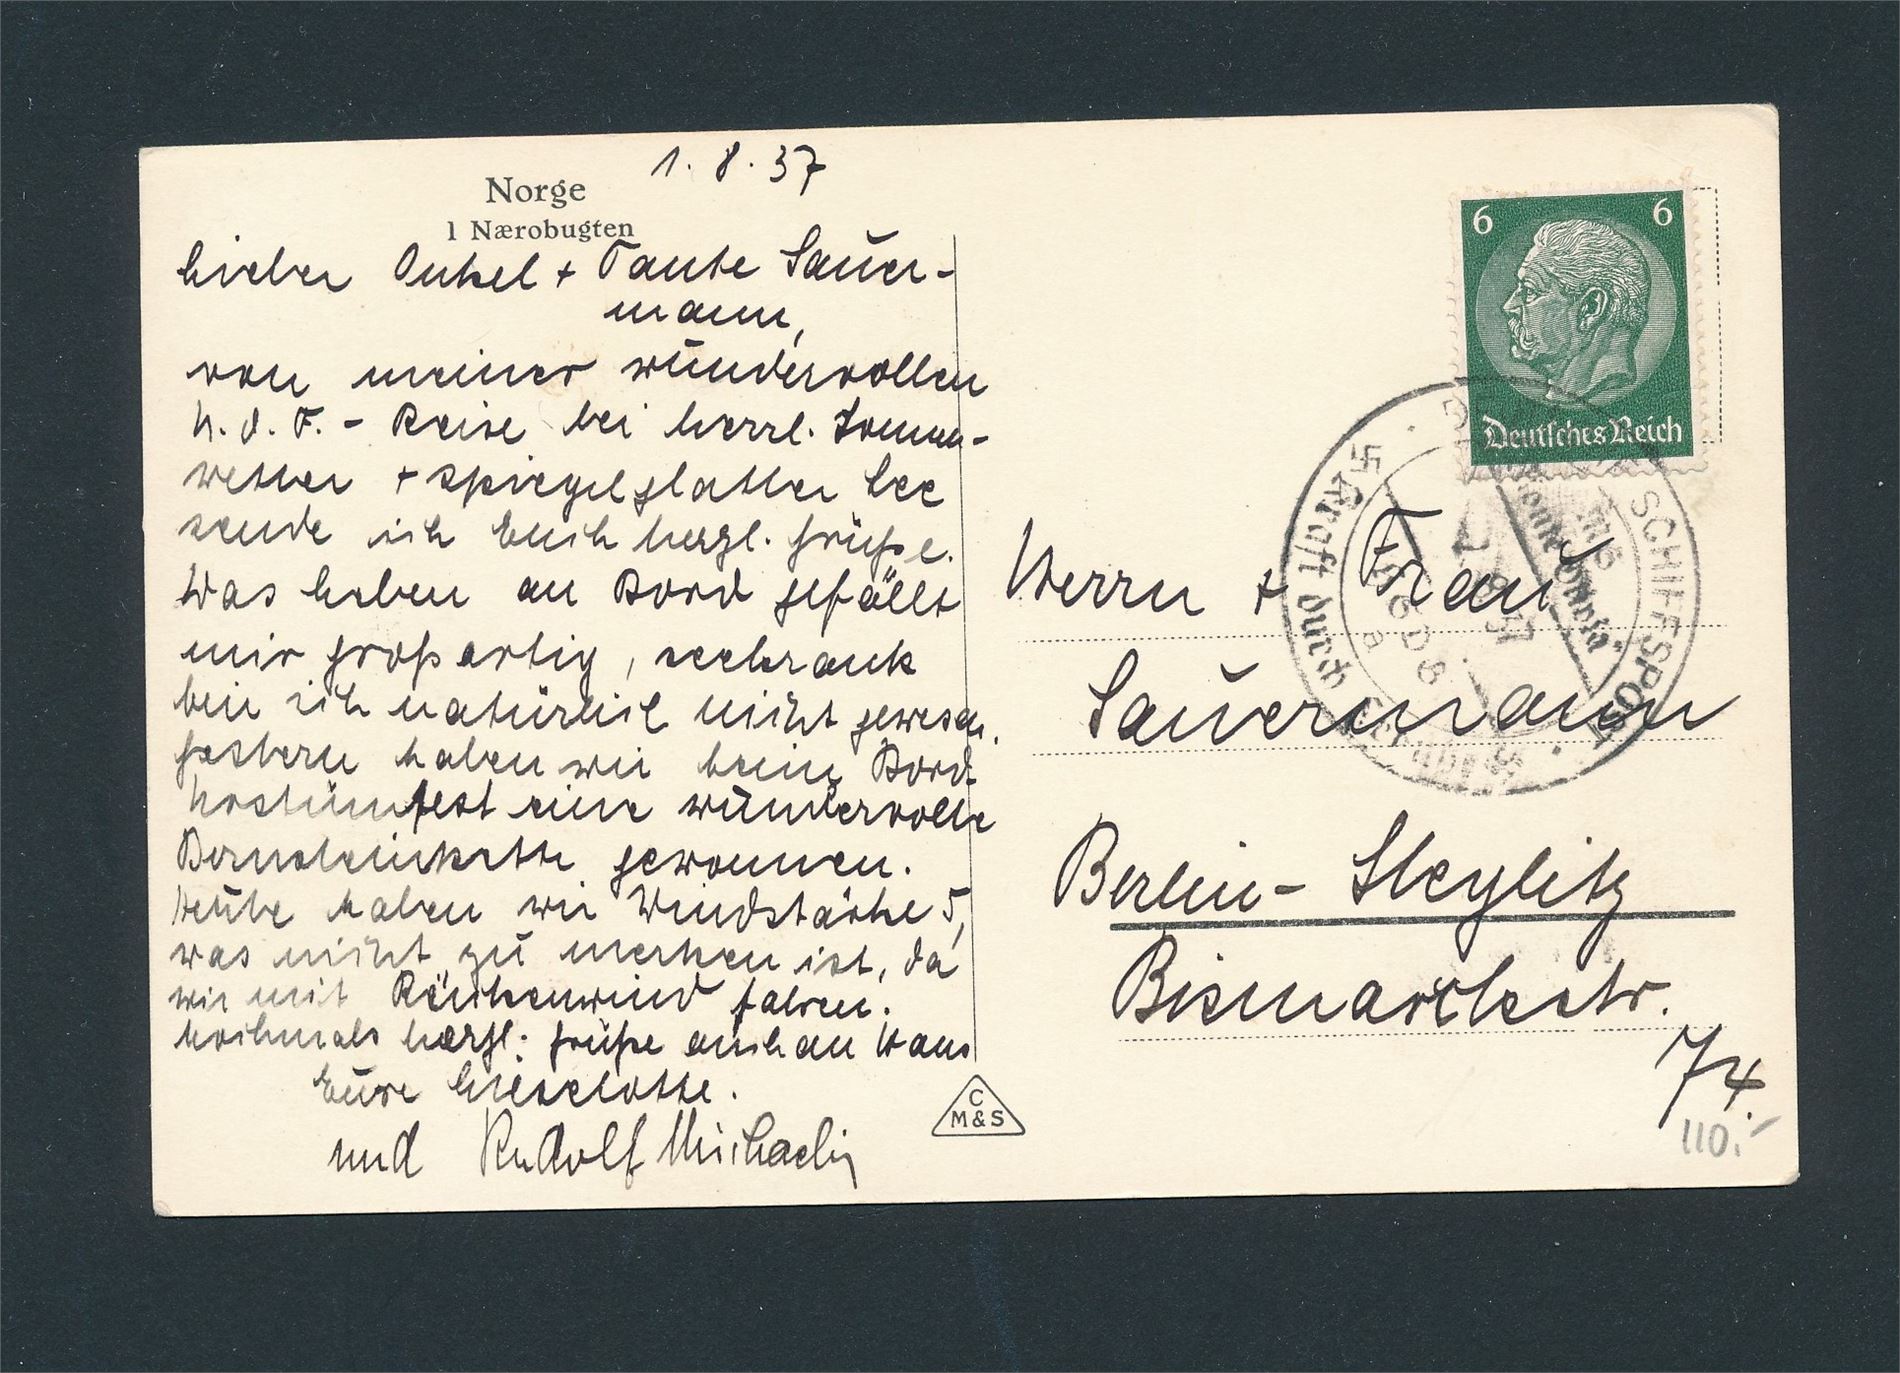 1. 8. 37
Norge
1 Nærobugten
Lieber Onkel + Tante Sauer-
mann,
von meiner wundervollen
K.d.F. - Reise bei herrl. Sonnen-
wetter + spiegelglatter See
sende ich Euch herzl. Grüße.
Das Leben an Bord gefällt
mir großartig, seekrank
bin ich natürlich nicht gewesen.
Gestern haben wir beim Bord-
kostümfest eine wundervolle
Bernsteinkette gewonnen.
Heute haben wir Windstärke 5,
was nicht zu merken ist, da
wir mit Rückenwind fahren.
Nochmals herzl. Grüße auch an Hans
Eure Lieselotte.
und Rudolf Michaelis
C
M&S
6 6
Deutsches Reich
卐 Kraft durch Freude 卐
DEUTSCHE SCHIFFSPOST
Herrn + Frau
Sauermann
Berlin-Steglitz
Bismarckstr.
74.
110.-